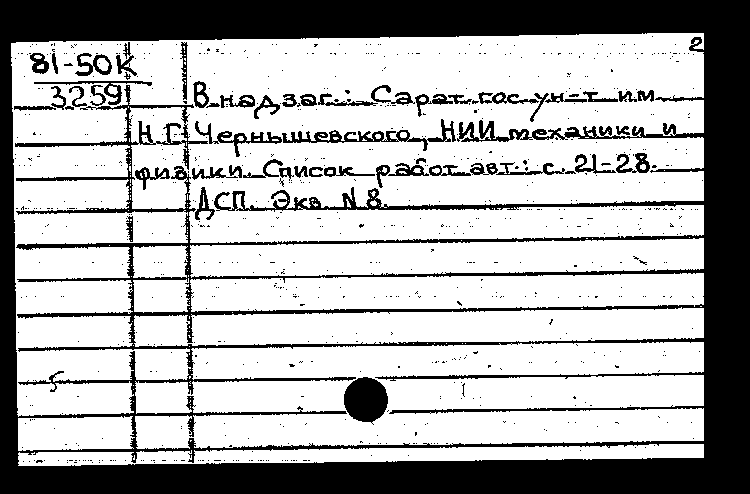 2
81-50К
3259
В надзаг.: Сарат. гос. ун-т им.
Н.Г. Чернышевского, НИИ механики и
физики. Список работ авт.: с. 21-28.
ДСП. Экз. N 8.
5